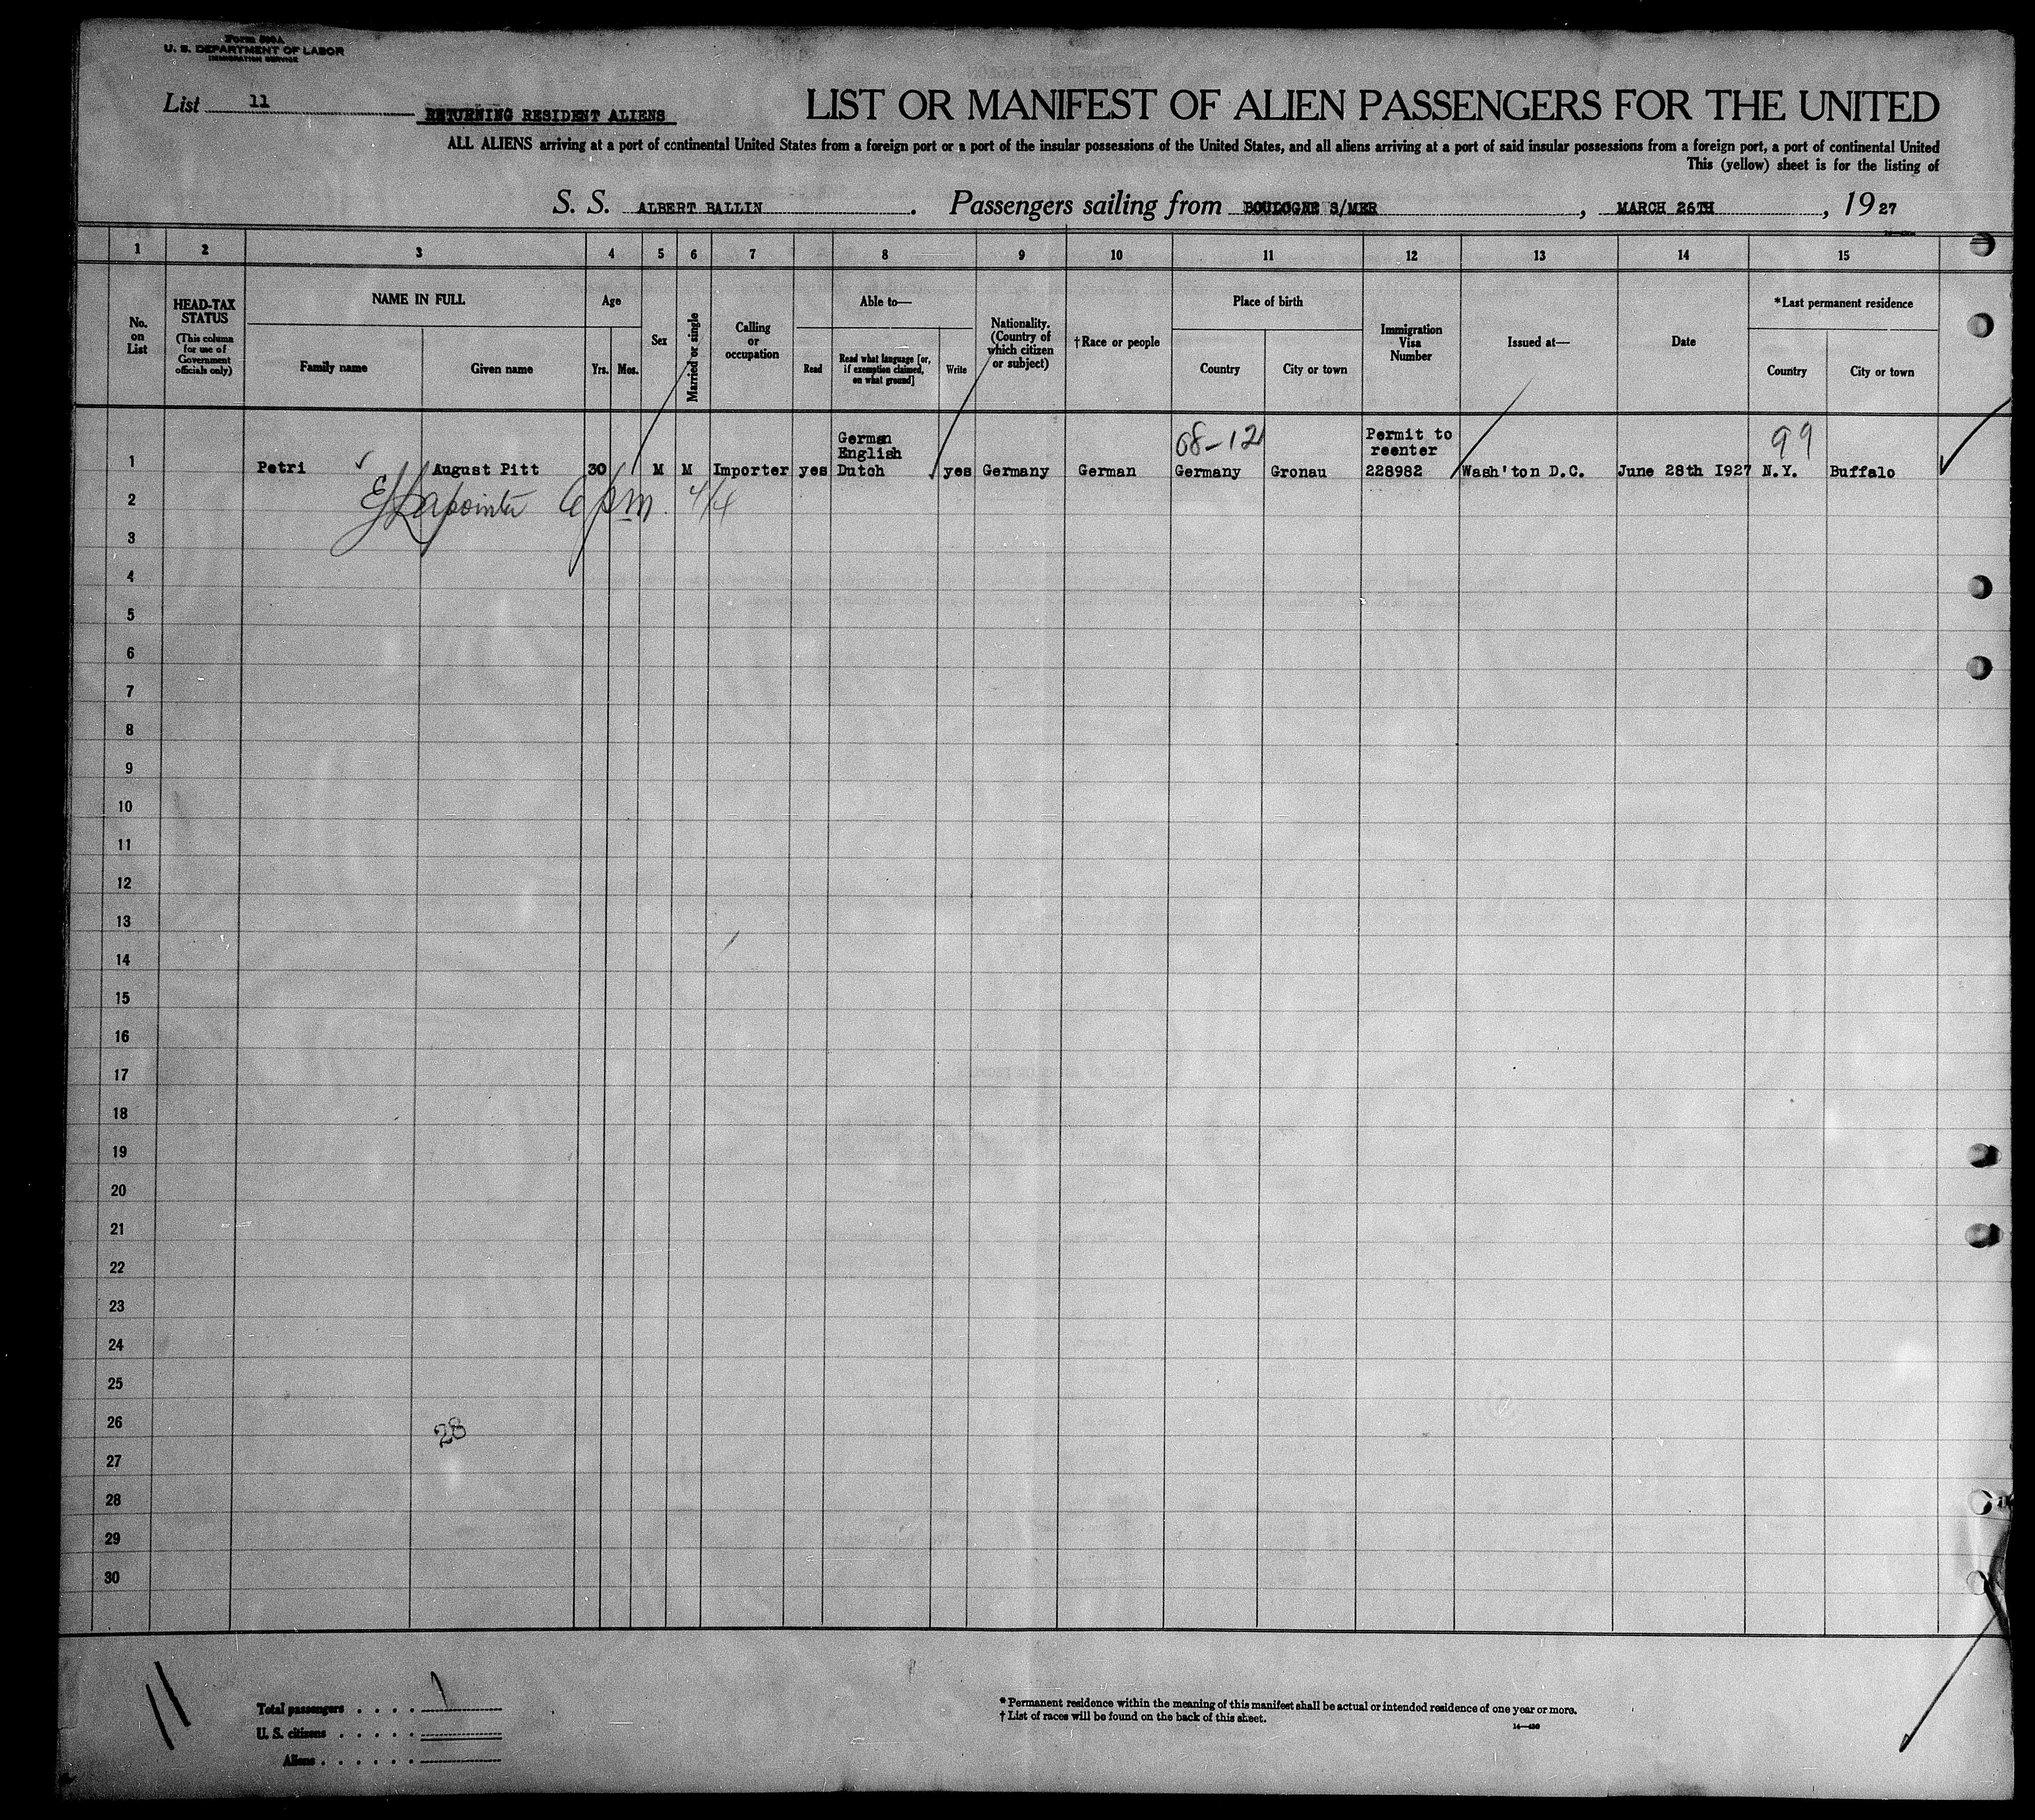 U. S. DEPARTMENT OF LABOR
IMMIGRATION SERVICE
List 11
RETURNING RESIDENT ALIENS
LIST OR MANIFEST OF ALIEN PASSENGERS FOR THE UNITED
ALL ALIENS arriving at a port of continental United States from a foreign port or a port of the insular possessions of the United States, and all aliens arriving at a port of said insular possessions from a foreign port, a port of continental United
This (yellow) sheet is for the listing of
S. S. ALBERT BALLIN . Passengers sailing from BOULOGNE S/MER , MARCH 26TH , 1927
1 2 3 4 5 6 7 8 9 10 11 12 13 14 15
No. on List
HEAD-TAX STATUS
(This column for use of Government officials only)
NAME IN FULL
Family name
Given name
Age
Yrs. Mos.
Sex
Married or single
Calling or occupation
Able to—
Read
Read what language [or, if exemption claimed, on what ground]
Write
Nationality. (Country of which citizen or subject)
†Race or people
Place of birth
Country
City or town
Immigration Visa Number
Issued at—
Date
*Last permanent residence
Country
City or town
08-12
99
German
English
Permit to
reenter
1 Petri August Pitt 30 M M Importer yes Dutch yes Germany German Germany Gronau 228982 Wash'ton D.C. June 28th 1927 N.Y. Buffalo
Lapointe 6 pm. 4/4
2
3
4
5
6
7
8
9
10
11
12
13
14
15
16
17
18
19
20
21
22
23
24
25
26
28
27
28
29
30
11
Total passengers . . . . 1
U. S. citizens . . . . .
Aliens . . . . . .
* Permanent residence within the meaning of this manifest shall be actual or intended residence of one year or more.
† List of races will be found on the back of this sheet.